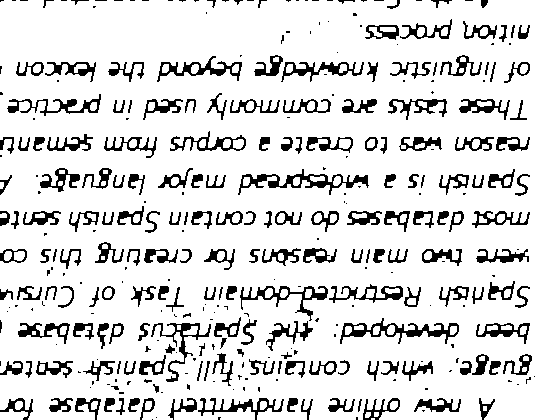 A new offline handwritten database for
guage, which contains full Spanish senten
been developed: the Spartacus database (
Spanish Restricted-domain Task of Cursiv
were two main reasons for creating this co
most databases do not contain Spanish sente
Spanish is a widespread major language. A
reason was to create a corpus from semanti
These tasks are commonly used in practice
of linguistic knowledge beyond the lexicon
nition process.